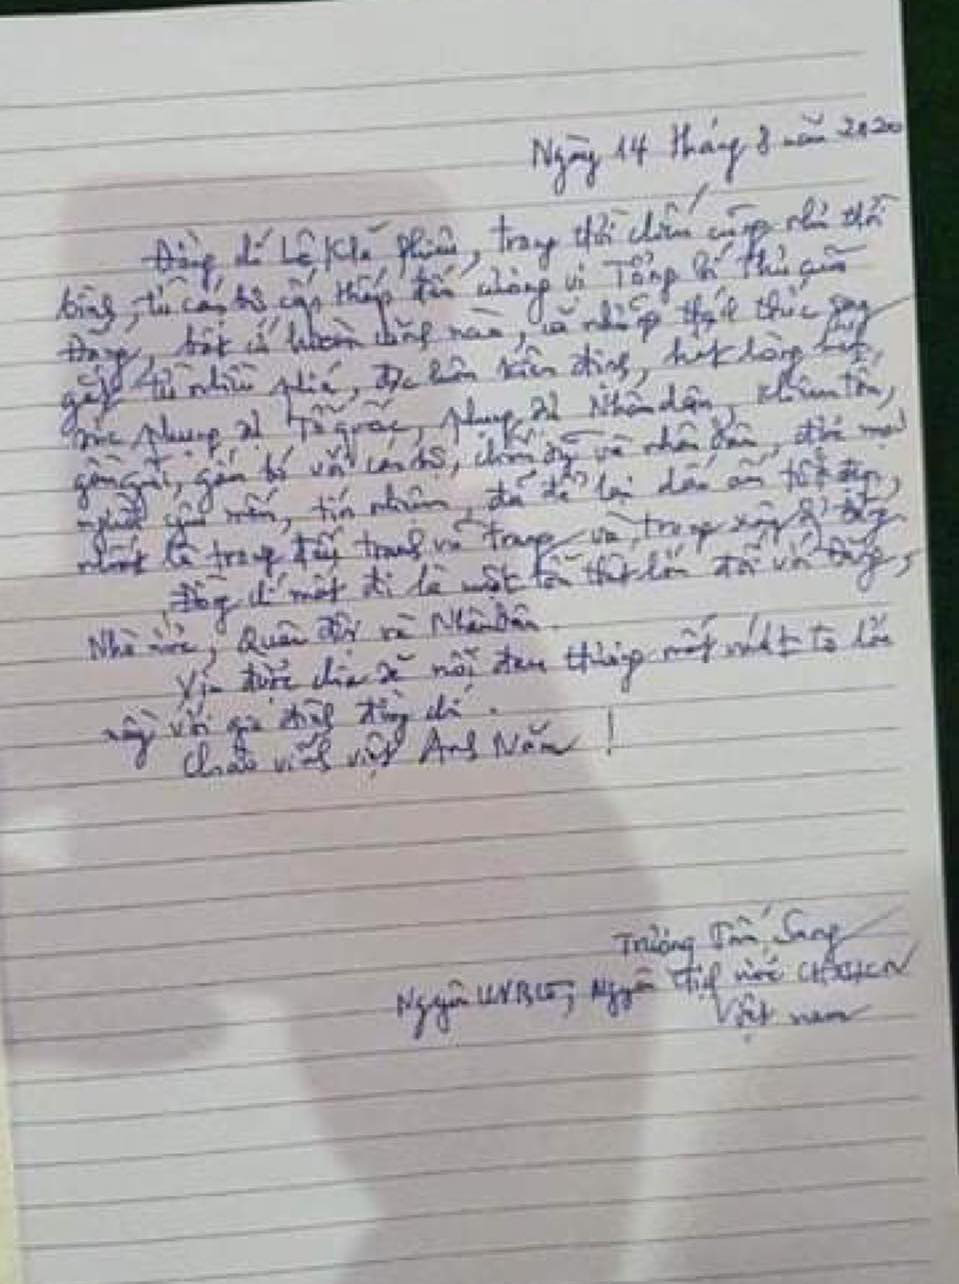 Ngày 14 tháng 8 năm 2020
Đồng chí Lê Khả Phiêu, trong thời chiến cũng như thời
bình, từ cán bộ cấp thấp đến cương vị Tổng Bí thư của
Đảng, bất cứ hoàn cảnh nào, có những thách thức gay
gắt từ nhiều phía, đ/c luôn kiên định, hết lòng, hết
sức phụng sự Tổ quốc, phụng sự Nhân dân, khiêm tốn,
gần gũi, gắn bó với cán bộ, chiến sỹ và nhân dân, được mọi
người yêu mến, tín nhiệm, đã để lại dấu ấn tốt đẹp,
nhất là trong đấu tranh vũ trang và trong xây dựng Đảng.
Đồng chí mất đi là một tổn thất lớn đối với Đảng,
Nhà nước, Quân đội và Nhân dân.
Xin được chia sẻ nỗi đau thương mất mát to lớn
này với gia đình đồng chí.
Chào vĩnh biệt Anh Năm!
Trương Tấn Sang
Nguyên UVBCT, Nguyên Ctịch nước CHXHCN
Việt Nam